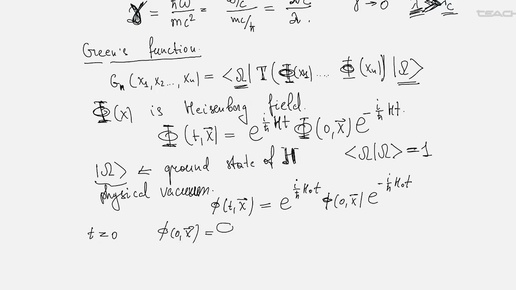 γ = ħω/mc² = ω/c / mc/ħ = / λ . γ → 0
TEACH
Green's function.
Gₙ(x₁, x₂ ..., xₙ) = <Ω| T(Φ(x₁) .... Φ(xₙ)) |Ω>
Φ(x) is Heisenberg field.
Φ(t, x⃗) = e^{i/ħ Ht} Φ(0, x⃗) e^{-i/ħ Ht}.
|Ω> ← ground state of H <Ω|Ω> = 1
physical vacuum.
ϕ(t, x⃗) = e^{i/ħ H₀t} ϕ(0, x⃗) e^{-i/ħ H₀t}
t = 0 ϕ(0, x⃗) =